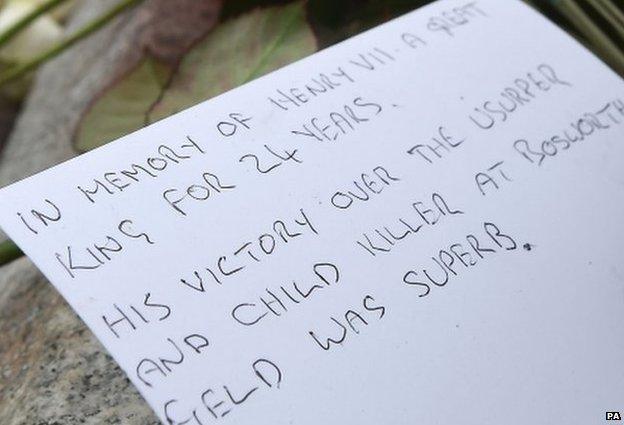 IN MEMORY OF HENRY VII. A GREAT
KING FOR 24 YEARS.
HIS VICTORY OVER THE USURPER
AND CHILD KILLER AT BOSWORTH
FIELD WAS SUPERB.
PA